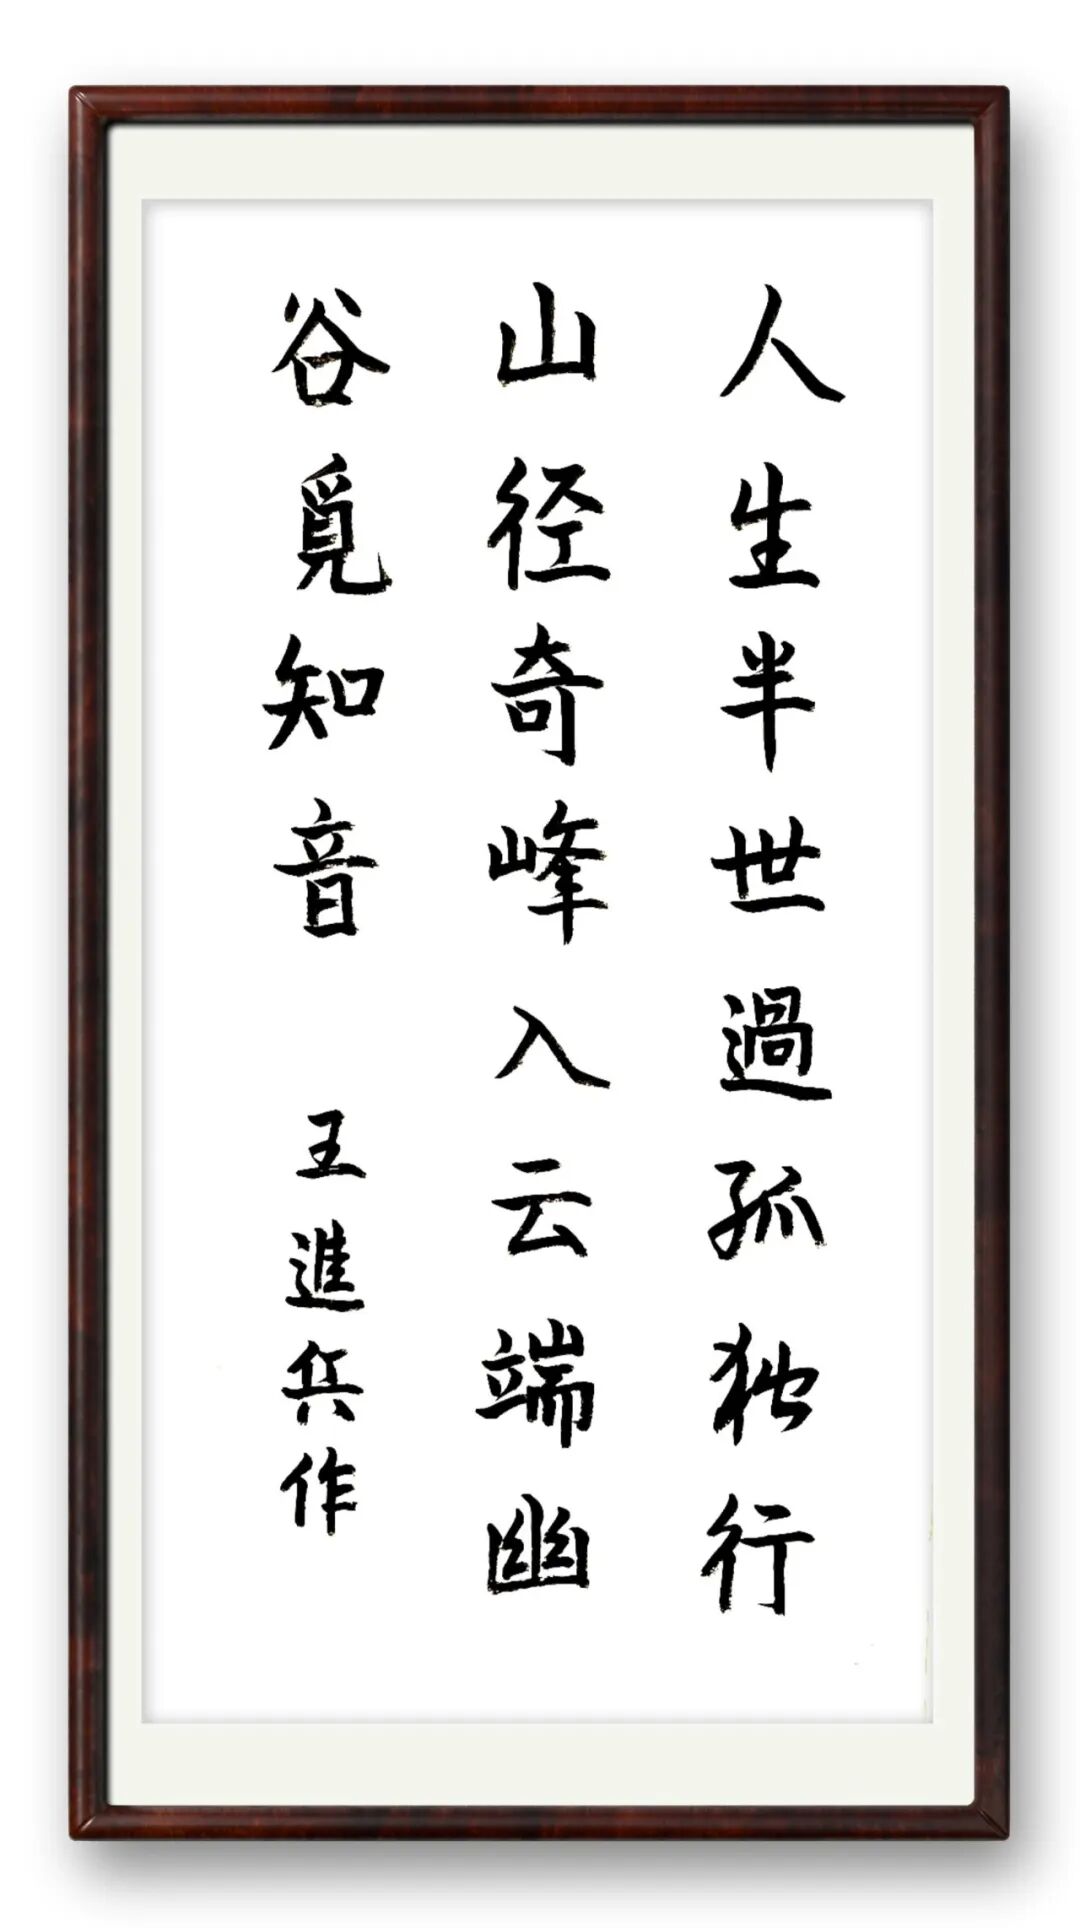 人生半世過孤独行
山径奇峰入云端幽
谷覓知音
王進兵作